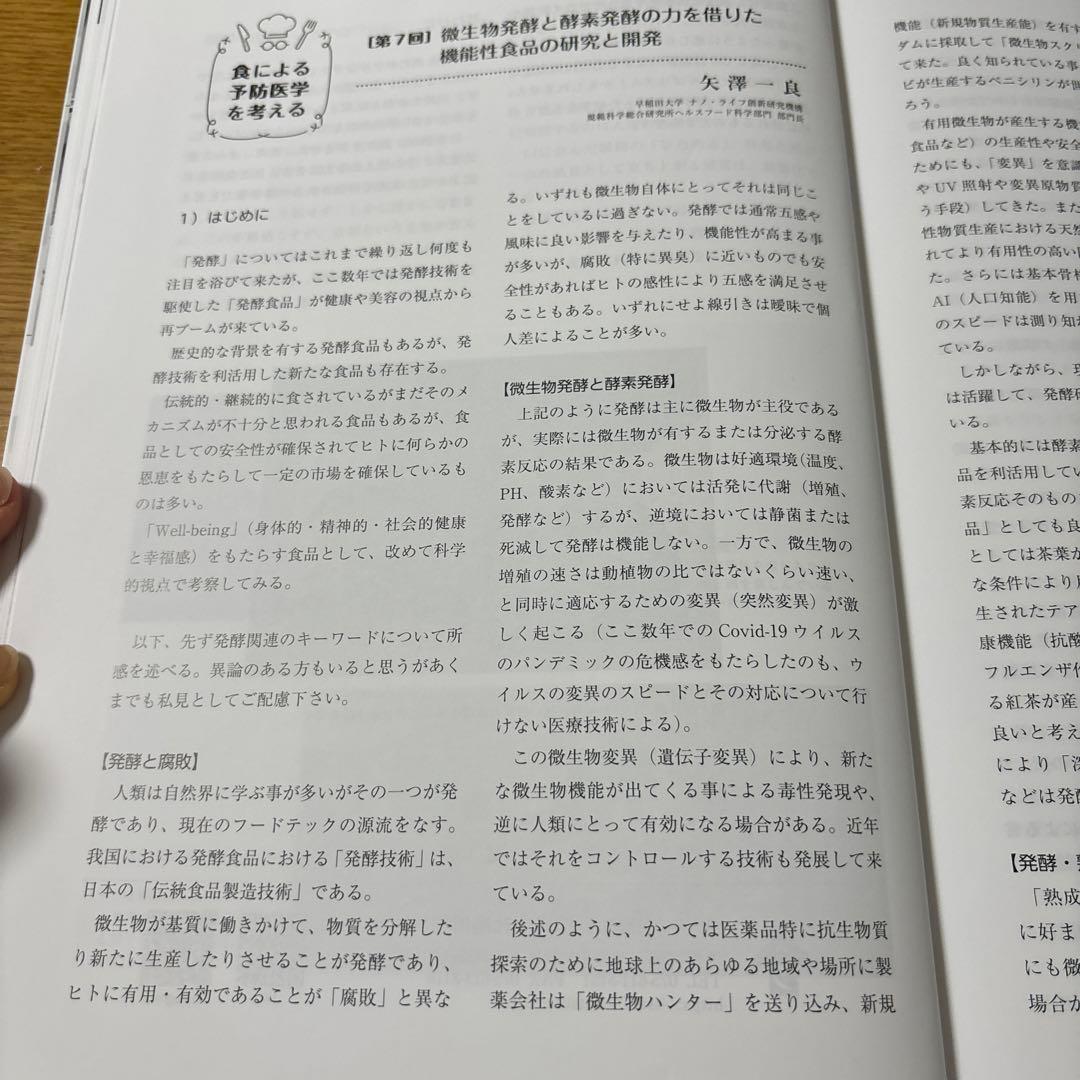 食による
予防医学
を考える
［第7回］微生物発酵と酵素発酵の力を借りた
機能性食品の研究と開発
矢澤一良
早稲田大学 ナノ・ライフ創新研究機構
規範科学総合研究所ヘルスフード科学部門 部門長
1）はじめに
「発酵」についてはこれまで繰り返し何度も
注目を浴びて来たが、ここ数年では発酵技術を
駆使した「発酵食品」が健康や美容の視点から
再ブームが来ている。
歴史的な背景を有する発酵食品もあるが、発
酵技術を利活用した新たな食品も存在する。
伝統的・継続的に食されているがまだそのメ
カニズムが不十分と思われる食品もあるが、食
品としての安全性が確保されてヒトに何らかの
恩恵をもたらして一定の市場を確保しているも
のは多い。
「Well-being」（身体的・精神的・社会的健康
と幸福感）をもたらす食品として、改めて科学
的視点で考察してみる。
以下、先ず発酵関連のキーワードについて所
感を述べる。異論のある方もいると思うがあく
までも私見としてご配慮下さい。
【発酵と腐敗】
人類は自然界に学ぶ事が多いがその一つが発
酵であり、現在のフードテックの源流をなす。
我国における発酵食品における「発酵技術」は、
日本の「伝統食品製造技術」である。
微生物が基質に働きかけて、物質を分解した
り新たに生産したりさせることが発酵であり、
ヒトに有用・有効であることが「腐敗」と異な
る。いずれも微生物自体にとってそれは同じこ
とをしているに過ぎない。発酵では通常五感や
風味に良い影響を与えたり、機能性が高まる事
が多いが、腐敗（特に異臭）に近いものでも安
全性があればヒトの感性により五感を満足させ
ることもある。いずれにせよ線引きは曖昧で個
人差によることが多い。
【微生物発酵と酵素発酵】
上記のように発酵は主に微生物が主役である
が、実際には微生物が有するまたは分泌する酵
素反応の結果である。微生物は好適環境（温度、
PH、酸素など）においては活発に代謝（増殖、
発酵など）するが、逆境においては静菌または
死滅して発酵は機能しない。一方で、微生物の
増殖の速さは動植物の比ではないくらい速い、
と同時に適応するための変異（突然変異）が激
しく起こる（ここ数年での Covid-19 ウイルス
のパンデミックの危機感をもたらしたのも、ウ
イルスの変異のスピードとその対応について行
けない医療技術による）。
この微生物変異（遺伝子変異）により、新た
な微生物機能が出てくる事による毒性発現や、
逆に人類にとって有効になる場合がある。近年
ではそれをコントロールする技術も発展して来
ている。
後述のように、かつては医薬品特に抗生物質
探索のために地球上のあらゆる地域や場所に製
薬会社は「微生物ハンター」を送り込み、新規
機能（新規物質生産能）を有す
ダムに採取して「微生物スク
て来た。良く知られている事
ビが生産するペニシリンが
ろう。
有用微生物が産生する機
食品など）の生産性や安全
ためにも、「変異」を意識
やUV照射や変異原物質
う手段）してきた。また
性物質生産における天然
れてより有用性の高い
た。さらには基本骨格
AI（人口知能）を用
のスピードは測り知れ
ている。
しかしながら、
は活躍して、発酵研
いる。
基本的には酵素
品を利活用してい
素反応そのもの
品」としても良
としては茶葉が
な条件により
生されたテア
康機能（抗酸
フルエンザ
る紅茶が産
良いと考え
により「深
などは発酵
【発酵・
「熟成
に好ま
にも微
場合が